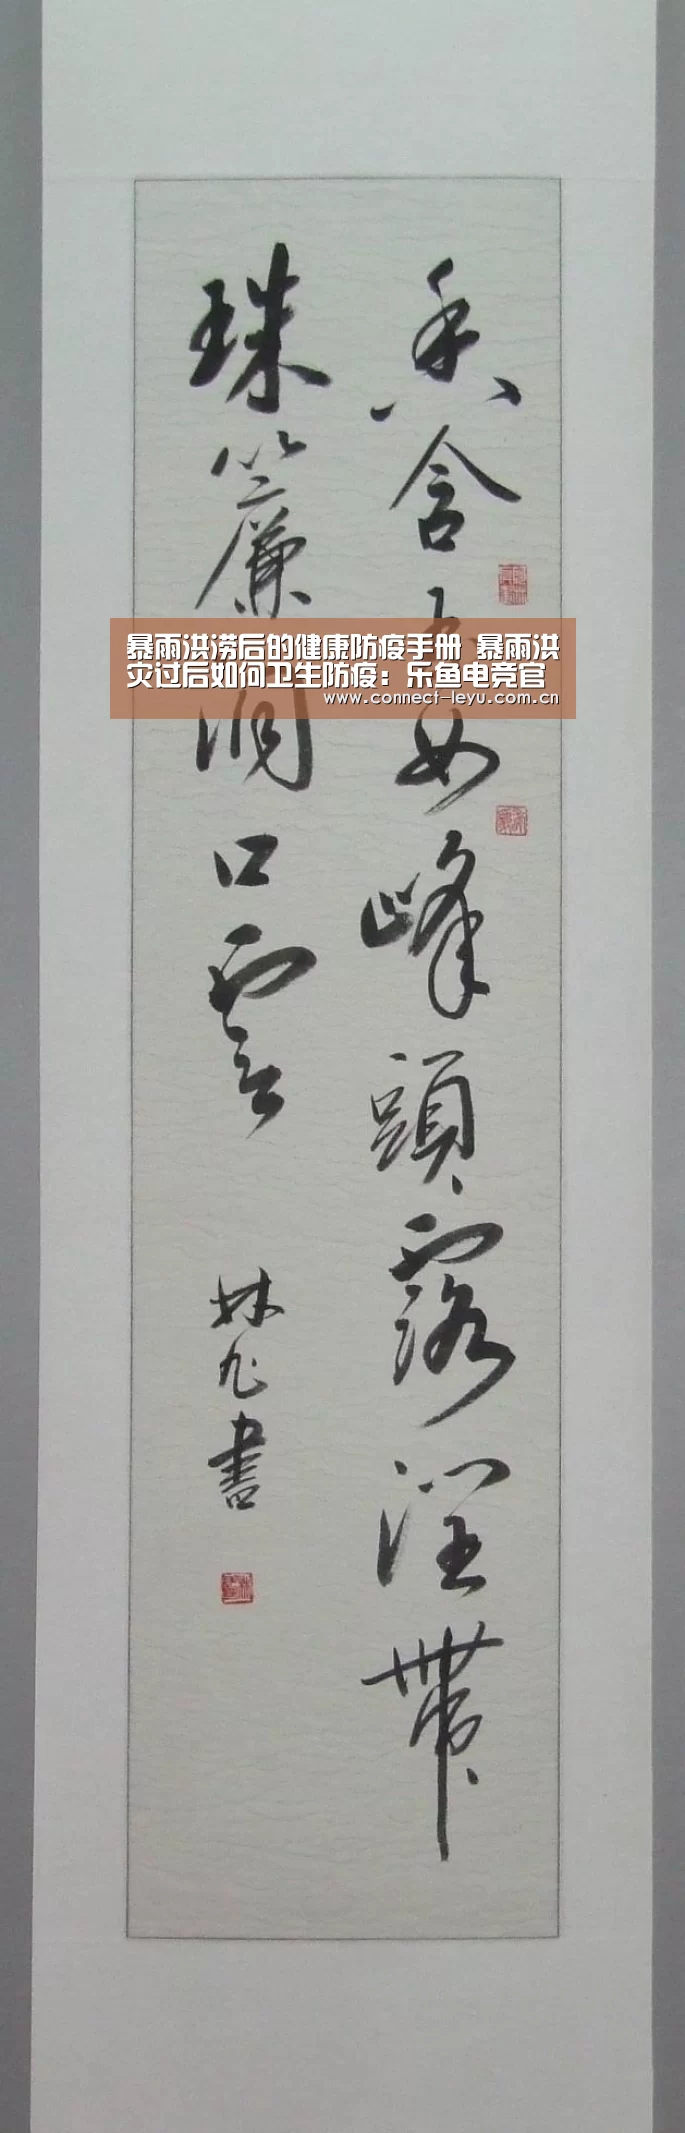 香含玉女峰頭露潤帶
珠簾洞口雲
林九書
暴雨洪涝后的健康防疫手册 暴雨洪
灾过后如何卫生防疫：乐鱼电竞官
www.connect-leyu.com.cn